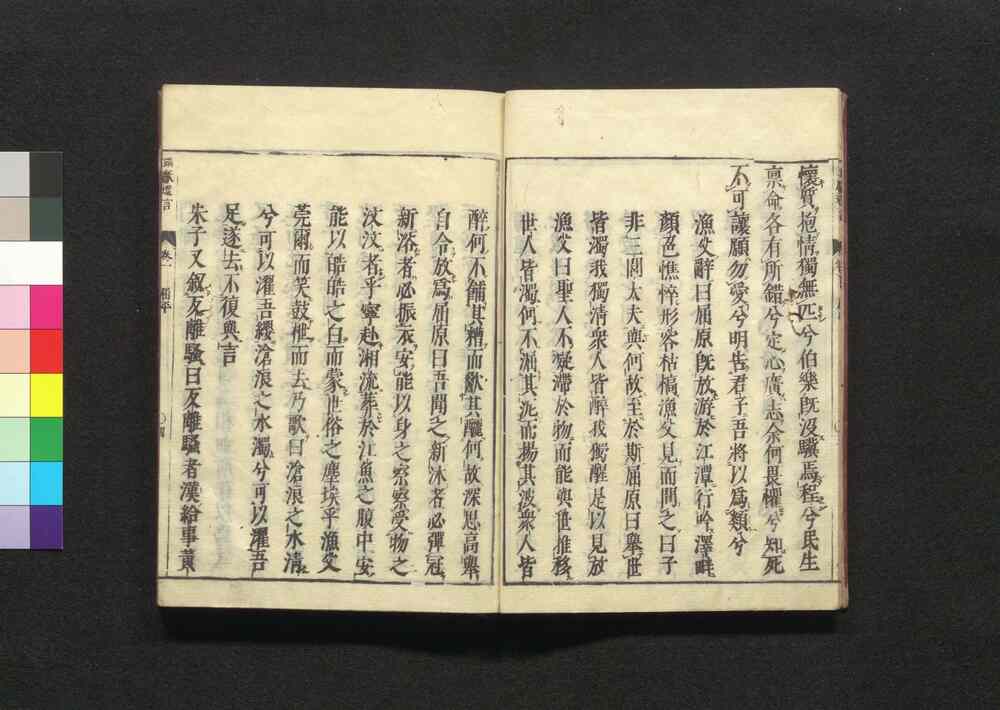 懷質抱情獨無匹兮伯樂旣沒驥焉程兮民生
禀命各有所錯兮定心廣志余何畏懼兮知死
不可讓願勿愛兮明告君子吾將以爲類兮
漁父辭曰屈原旣放游於江潭行吟澤畔
顏色憔悴形容枯槁漁父見而問之曰子
非三閭大夫與何故至於斯屈原曰舉世
皆濁我獨清衆人皆醉我獨醒是以見放
漁父曰聖人不凝滯於物而能與世推移
世人皆濁何不淈其泥而揚其波衆人皆
醉何不餔其糟而歠其醨何故深思高舉
自令放爲屈原曰吾聞之新沐者必彈冠
新浴者必振衣安能以身之察察受物之
汶汶者乎寧赴湘流葬於江魚之腹中安
能以皓皓之白而蒙世俗之塵埃乎漁父
莞爾而笑鼓枻而去乃歌曰滄浪之水清
兮可以濯吾纓滄浪之水濁兮可以濯吾
足遂去不復與言
朱子又叙反離騷曰反離騷者漢給事黃
遺言
卷一